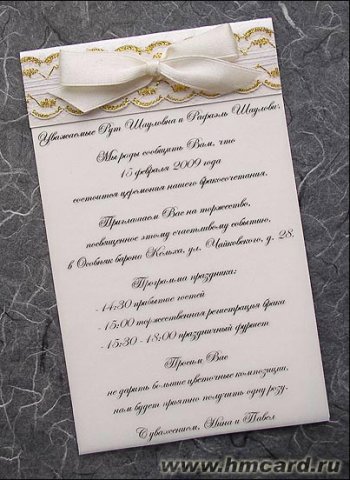 Уважаемые Рут Шауловна и Рафаэль Шаулович.
Мы рады сообщить Вам, что
15 февраля 2009 года
состоится церемония нашего бракосочетания.
Приглашаем Вас на торжество,
посвященное этому счастливому событию,
в Особняк барона Кельха, ул. Чайковского, д. 28.
Программа праздника:
- 14:30 прибытие гостей
- 15:00 торжественная регистрация брака
- 15:30 - 18:00 праздничный фуршет
Просим Вас
не дарить большие цветочные композиции,
нам будет приятно получить одну розу.
С уважением, Нина и Павел
www.hmcard.ru